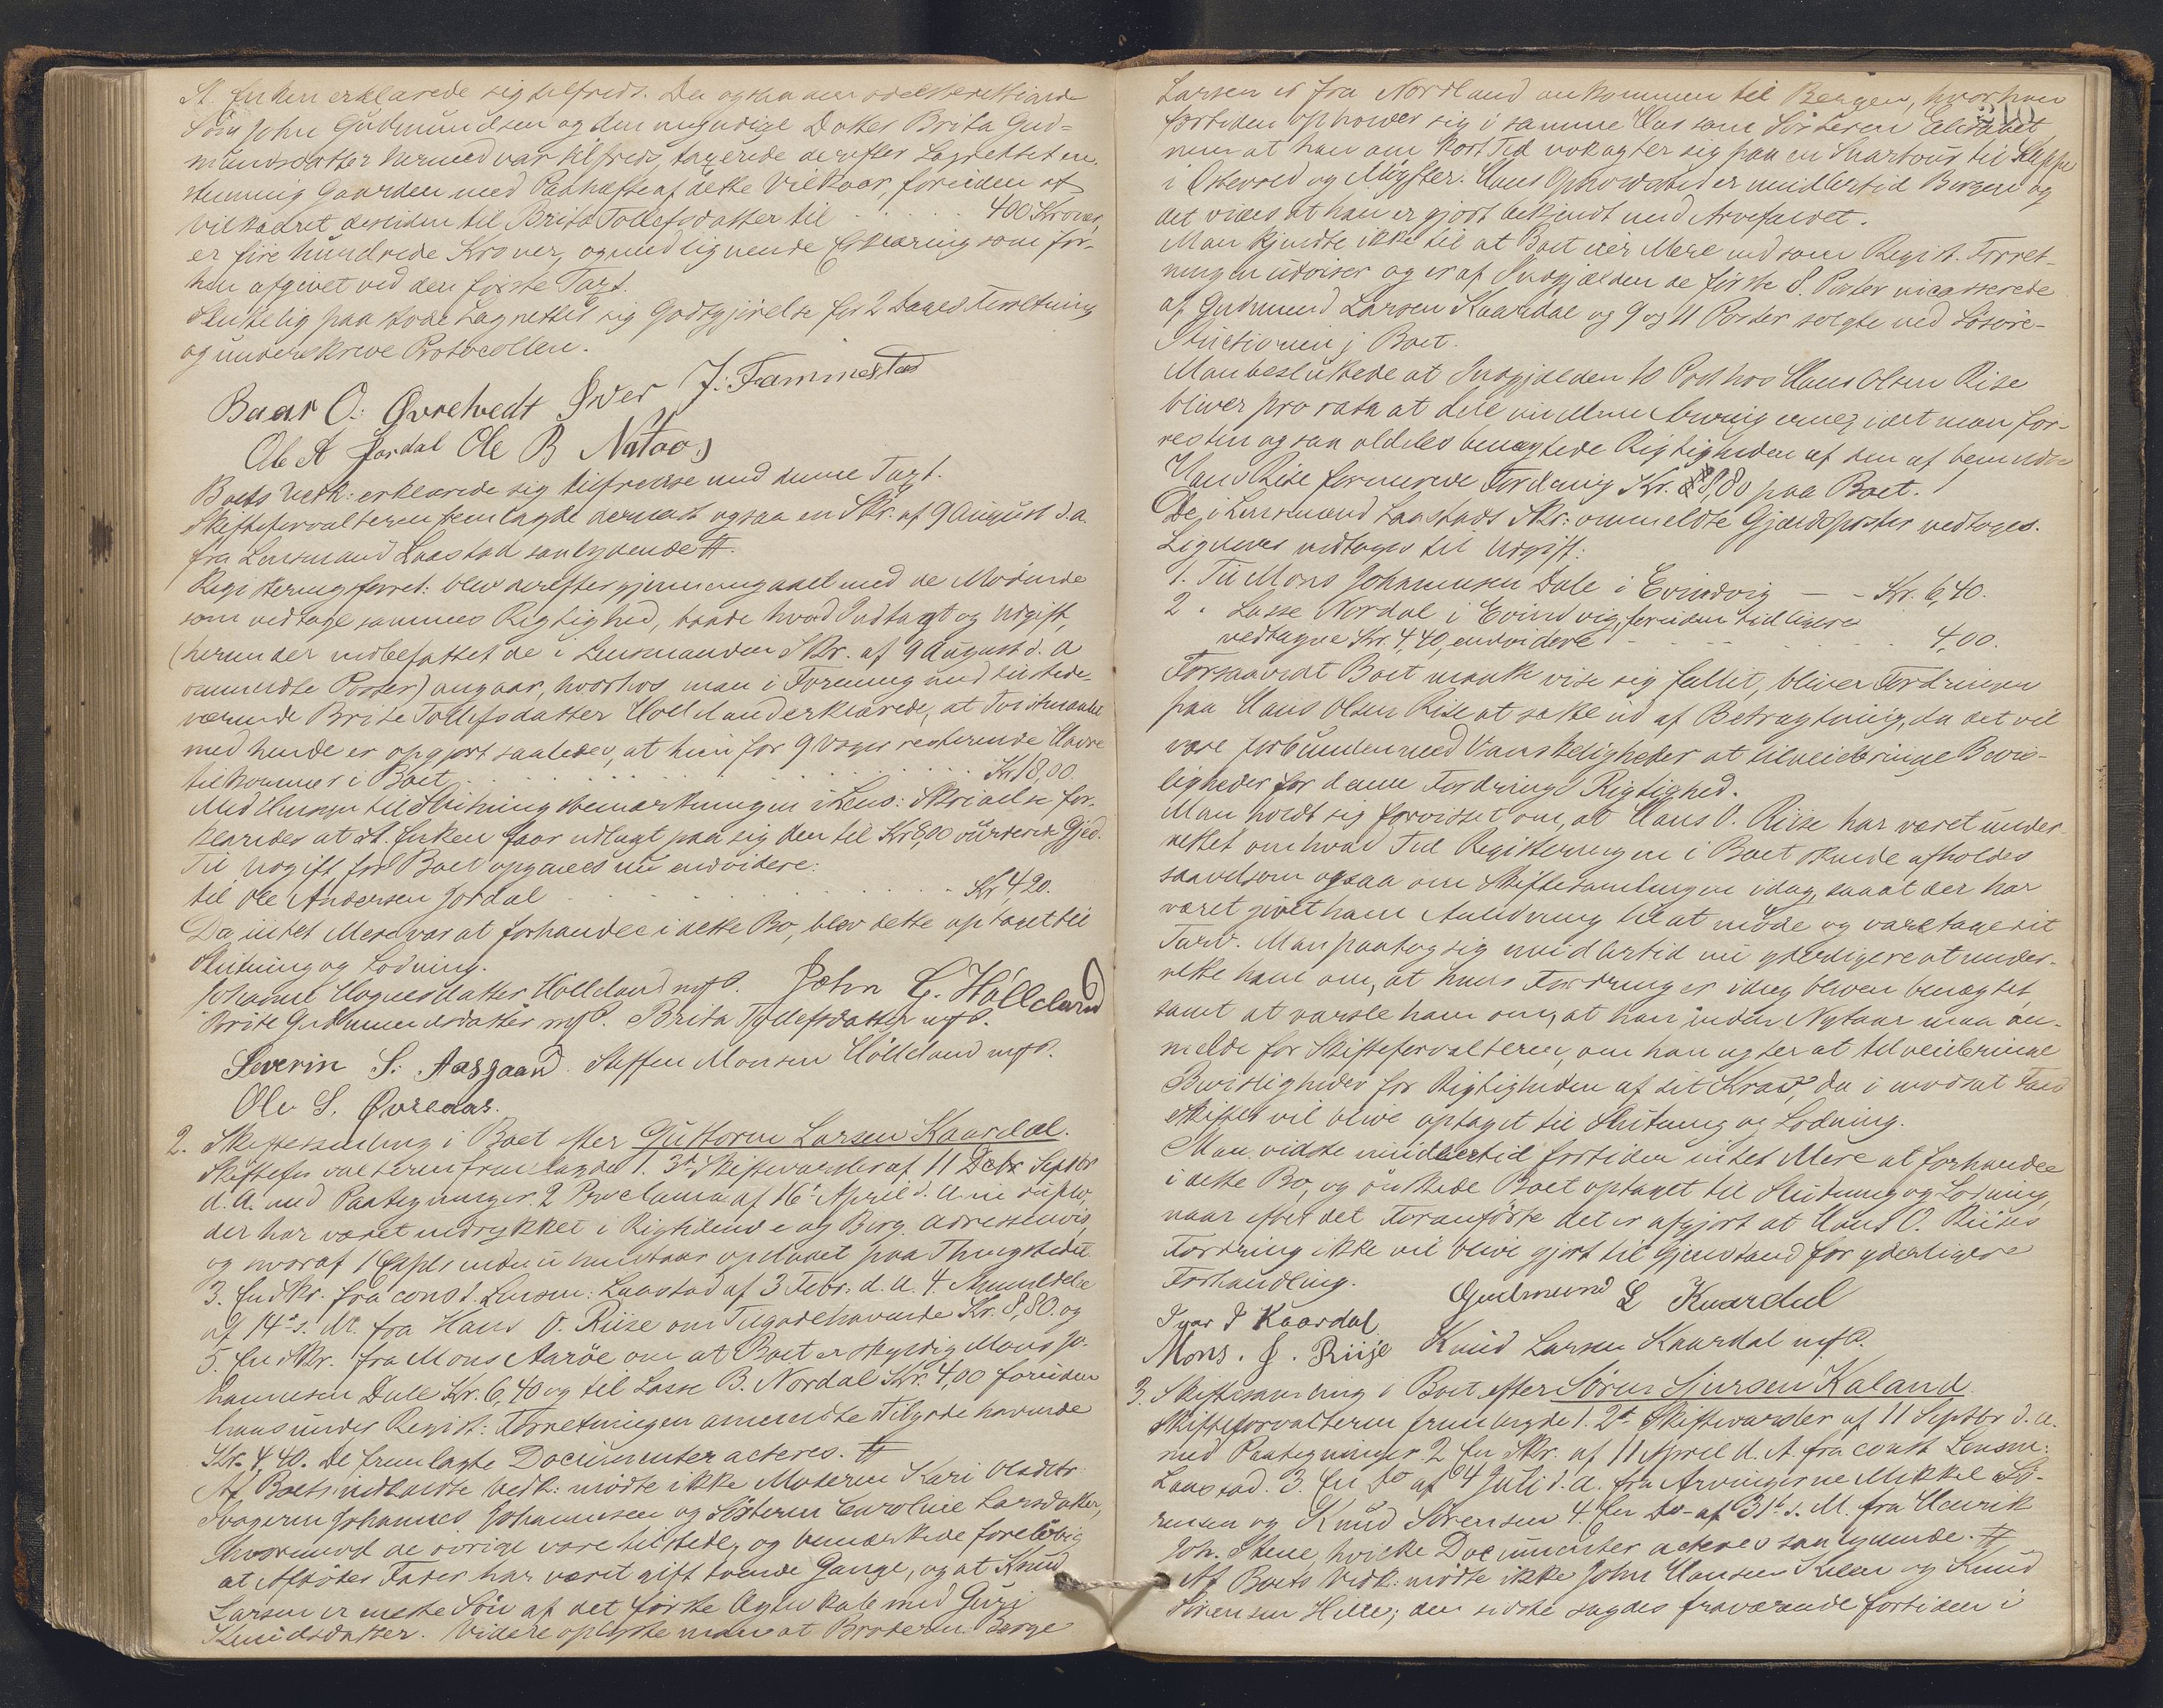 St. Enken erklærede sig tilfreds. Da ogsaa den odelsberettigede
Søn John Gudmundsen og den myndige Datter Brita Gud-
mundsdatter hermed var tilfreds, taxerede derefter Lagrettet en-
stemmig Gaarden med Paahæfte af dette Vilkaar, foruden af
Vilkaaret desuden til Brita Tollefsdatter til . . . . . 400 Kroner,
er fire hundrede Kroner, og med lignende Erklæring som for-
hen afgivet ved den første Taxt.
Sluttelig paastode Lagrettet sig Godtgjørelse for 2 Dages Forretning
og underskreve Protocollen.
Baar O. Øvretvedt Iver J. Fammestad
Ole A Jordal Ole B Nataas
Boets Vedk: erklærede sig tilfredse med denne Taxt.
Skifteforvalteren fremlagde dernæst ogsaa en Skr. af 9 August d. a.
fra Lensmand Laastad saalydende #.
Registreringsforret: blev derefter gjennemgaaet med de Mødende
som vedtoge sammes Rigtighed, baade hvad Indtægt og Udgift,
(herunder indbefattet de i Lensmandens Skr. af 9 August d. a
ommeldte Poster) angaar, hvorhos man i Forening med tilstede-
værende Brite Tollefsdatter Holleland erklærede, at
med hende er opgjort saaledes, at hun for 9 Voger resterende Havre
tilkommer i Boet . . . . . Kr 18,00.
Med Hensyn til Slutningsbemærkningen i Lens: Skrivelse for-
klaredes at St. Enken faar udlagt paa sig den til Kr 8,00 vurderede Gjed.
Til Udgift for Boet opgaves nu endvidere:
til Ole Andersen Jordal . . . . . Kr 4,20.
Da intet Mere var at forhandle i dette Bo, blev dette optaget til
Slutning og Lodning.
Johanne Haagnesdatter Holleland m.f.P. John G. Hølleland
Brite Gudmundsdatter m.f.P. Brita Tollefsdatter m.f.P.
Severin S. Aasgaard. Steffen Monsen Hølleland m.f.P.
Ole S. Øvreaas.
2. Skiftesamling i Boet efter Guttorm Larsen Kaardal.
Skifteforvalteren fremlagde 1. 3de Skiftevarsler af 11 Septbr
d. A. med Paategninger. 2 Proclama af 16de April d. A. in duplo,
der har været indrykket i Rigstidende og Berg. Adressecontoirs
og hvoraf 1 Expl. endnu opslaaet paa Thingstedet.
3. En Skr. fra const. Lensm: Laastad af 3 Febr. d. A. 4. Anmeldelse
af 14de s. M. fra Hans O. Riise om Tilgodehavende Kr. 8,80. og
5. En Skr. fra Mons Aarøe om at Boet er skyldig Mons Jo-
hannesen Dale Kr. 6,40 og til Lasse B. Nordal Kr. 4,00 foruden
hans under Regist: Forretningen anmeldte Tilgodehavende
Kr. 4,40. De fremlagte Documenter acteres. #
Af Boets indkaldte Vedk: mødte ikke Moderen Kari Olsdtr
Svogeren Johannes Johannesen og Søsteren Caroline Larsdatter,
hvorimod de øvrige vare tilstede, og bemærkede foreløbig
at Afdødes Fader har været gift tvende Gange, og at Knud
Larsen er eneste Søn af det første Ægteskab med Guri
Knudsdatter. Videre oplyste man at Broderen Børge
Larsen er fra Nordland ankommen til Bergen, hvor han
fortiden opholder sig i samme Hus som Søsteren Elisabet
men at han om kort Tid nok agter sig paa en Snartour til
i Østvold og Mygster. Hans Opholdssted er imidlertid Bergen og
det vides at han er gjort bekjendt med Arvefaldet.
Man kjendte ikke til at Boet eier Mere end som Regist. Forret-
ningen udviser og er af Indgjælden de første 8. Poster incasserede
af Gudmund Larsen Kaardal og 9 og 11 Poster solgte ved Løsøre-
Auctionen i Boet.
Man besluttede at Indgjælden 10 Post hos Hans Olsen Riise
bliver pro rata at dele imellem Arvingerne, idet man for-
resten ogsaa aldeles benægtede Rigtigheden af den af bemeldte
Hans Riise formerede Fordring Kr. 8,80 paa Boet.
De i Lensmand Laastads Skr: ommeldte Gjældsposter vedtoges.
Ligeledes vedtoges til Udgift:
1. Til Mons Johannesen Dale i Evindvig — - Kr. 6,40.
2. Lasse Nordal i Evindvig, foruden tidligere
vedtagne Kr. 4,40, endvidere . . . . . 4,00.
Forsaavidt Boet maatte vise sig fallit, bliver Fordringen
paa Hans Olsen Riise at sætte ud af Betragtning, da det vil
være forbunden med Vanskeligheder at tilveiebringe Bevis-
ligheder for denne Fordrings Rigtighed.
Man holdt sig forvisset om, at Hans O. Riise har været under-
rettet om hvad Tid Registreringen i Boet skulde afholdes
saavelsom ogsaa om Skiftesamlingen idag, saaat der har
været givet ham Anledning til at møde og varetage sit
Tarv. Man paatog sig imidlertid nu yderligere at under-
rette ham om, at hans Fordring er idag bleven benægtet,
samt at varsle ham om, at han inden Nytaar maa an-
melde for Skifteforvalteren, om han agter at tilveiebringe
Bevisligheder for Rigtigheden af sit Krav, da i modsat Fald
Skiftet vil blive optaget til Slutning og Lodning.
Man vidste imidlertid fortiden intet Mere at forhandle
i dette Bo, og ønskede Boet optaget til Slutning og Lodning,
naar efter det Foranførte det er afgjort at Hans O. Riises
Fordring ikke vil blive gjort til Gjenstand for yderligere
Forhandling.
Gudmund L Kaardal
Ivar I Kaardal
Mons. J. Riise Knud Larsen Kaardal m.f.P.
3. Skiftesamling i Boet efter Søren Sjursen Kaland
Skifteforvalteren fremlagde 1. 2de Skiftevarsler af 11 Septbr d. a.
med Paategninger. 2 En Skr. af 11 April d. A. fra const Lensm:
Laastad. 3. En Do af 4 Juli d. a. fra Arvingerne Mikkel Sø-
rensen og Knud Sørensen 4. En Do- af 31te s. M. fra Henrik
Joh. Skeie, hvilke Documenter acteres saalydende. #
Af Boets Vedk: mødte ikke John Hansen og Knud
Sørensen Hille; den sidste sagdes fraværende fortiden i